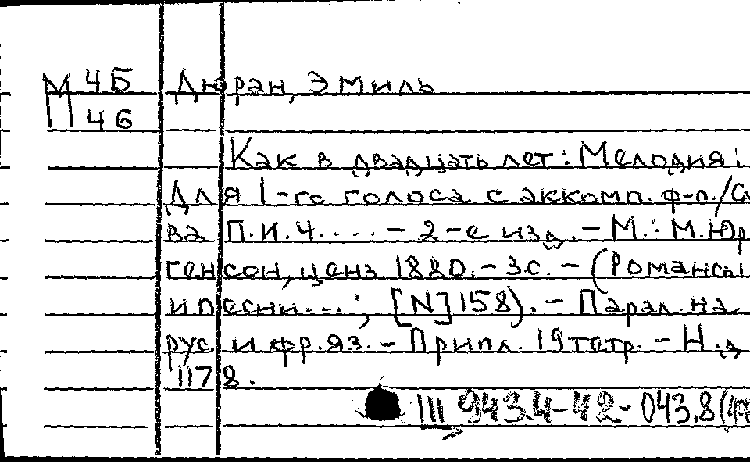 М 45 Дюран, Эмиль
П 46
Как в двадцать лет: Мелодия:
Для 1-го голоса с аккомп. ф-п./Сло
ва П.И.Ч.... - 2-е изд. - М.: М.Юр
генсон, ценз 1880. - 3с. - (Романсы
и песни...; [N] 158). - Парал. на
рус. и фр. яз. - Припл. 19 тетр. - Н.д
1178.
III 943.4-42-043.8(44